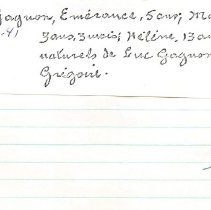 Gagnon, Emérance, 5ans; Ma
-41
3ans, 3 mois; Hélène, 13 an
naturels de Luc Gagnon
Grégoire.